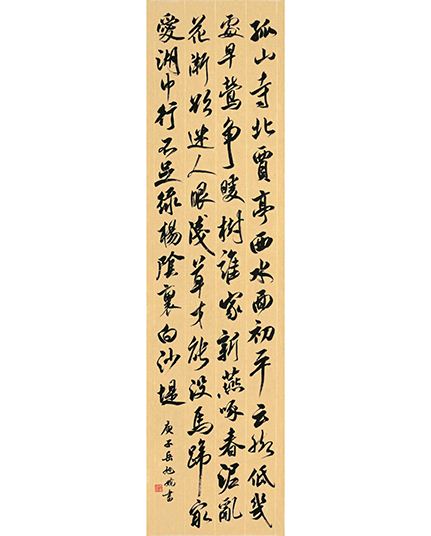 孤山寺北賈亭西水面初平云腳低幾
處早鶯争暖樹誰家新燕啄春泥亂
花漸欲迷人眼淺草才能沒馬蹄最
愛湖中行不足綠楊陰裏白沙堤
庚子岳旭書